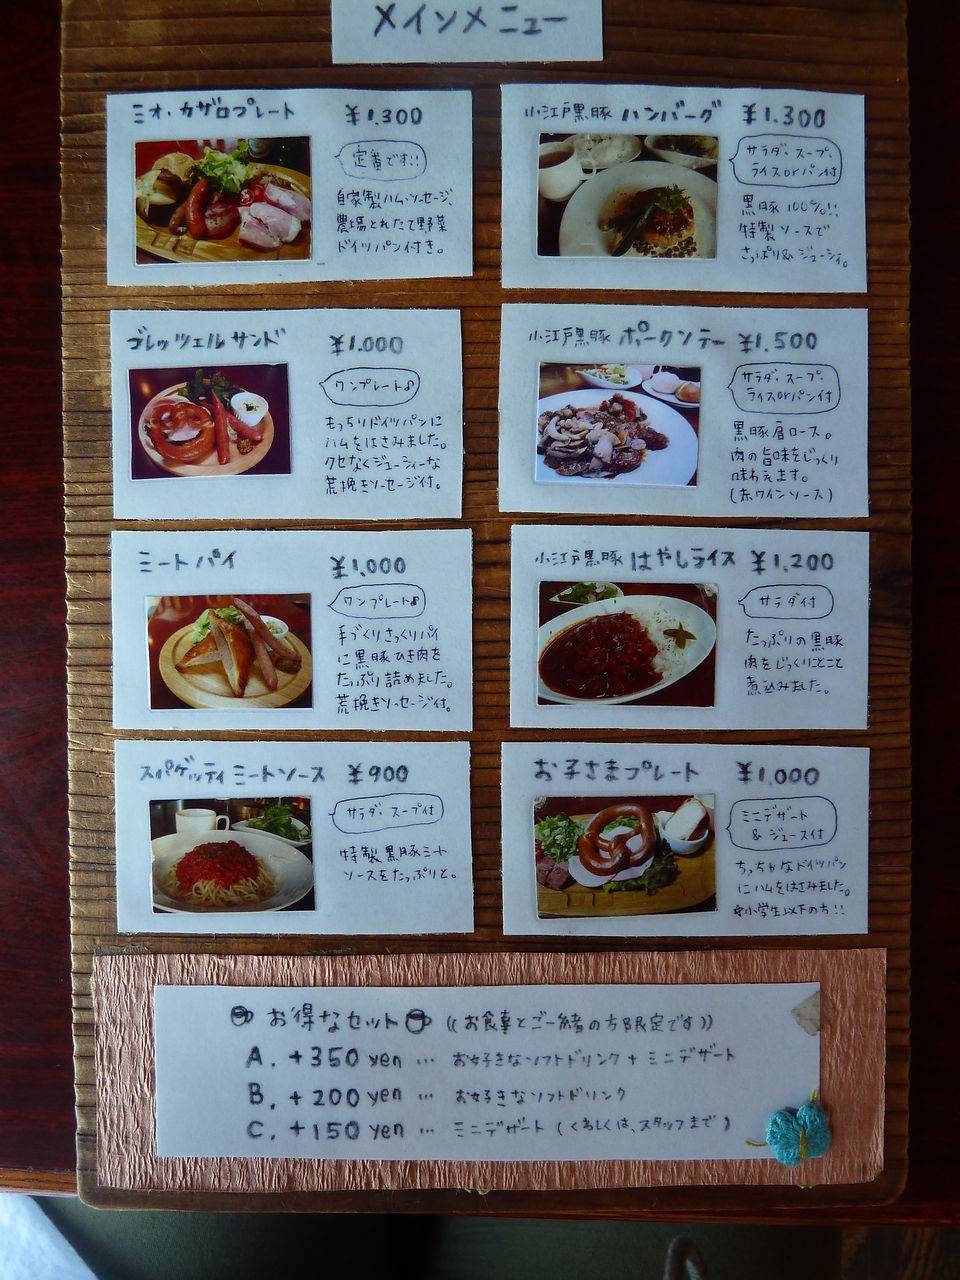 メインメニュー
ミオ・カザロプレート ¥1,300
定番です!!
自家製ハム・ソーセージ、
農場とれたて野菜
ドイツパン付き。
小江戸黒豚 ハンバーグ ¥1,300
サラダ・スープ・
ライスorパン付
黒豚100%!!
特製ソースで
さっぱり&ジューシィ。
ブレッツェルサンド ¥1,000
ワンプレート♪
もっちりドイツパンに
ハムをはさみました。
クセなくジューシーな
荒挽きソーセージ付。
小江戸黒豚 ポークソテー ¥1,500
サラダ・スープ・
ライスorパン付
黒豚肩ロース。
肉の旨味をじっくり
味わえます。
(赤ワインソース)
ミートパイ ¥1,000
ワンプレート♪
手づくりさっくりパイ
に黒豚ひき肉を
たっぷり詰めました。
荒挽きソーセージ付。
小江戸黒豚 はやしライス ¥1,200
サラダ付
たっぷりの黒豚
肉をじっくりことこと
煮込みました。
スパゲッティミートソース ¥900
サラダ・スープ付
特製黒豚ミート
ソースをたっぷりと。
お子さまプレート ¥1,000
ミニデザート
&ジュース付
ちっちゃなドイツパン
にハムをはさみました。
小学生以下の方!!
お得なセット ((お食事とご一緒の方限定です))
A. +350 yen … お好きなソフトドリンク + ミニデザート
B. +200 yen … お好きなソフトドリンク
C. +150 yen … ミニデザート (くわしくは、スタッフまで)